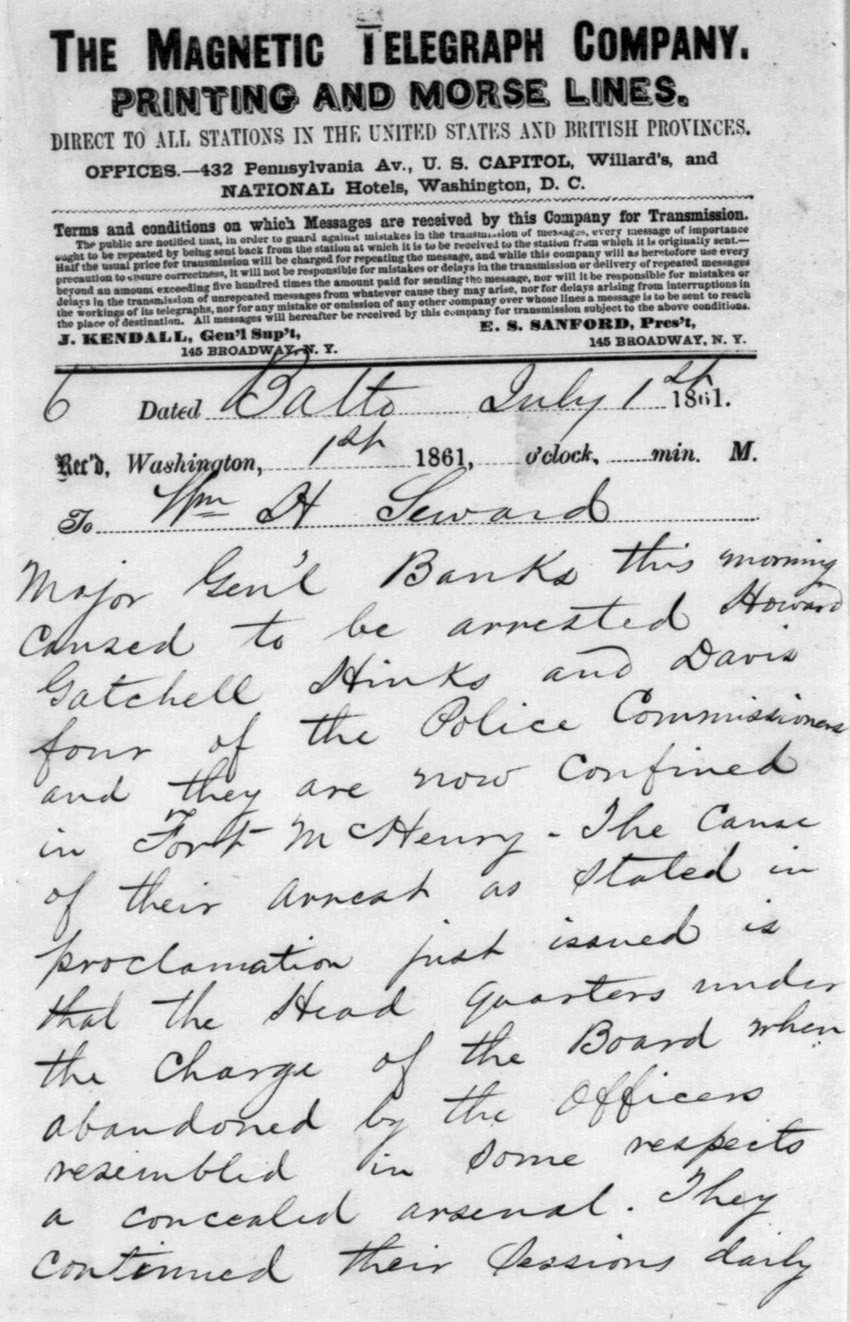 THE MAGNETIC TELEGRAPH COMPANY.
PRINTING AND MORSE LINES.
DIRECT TO ALL STATIONS IN THE UNITED STATES AND BRITISH PROVINCES.
OFFICES.—432 Pennsylvania Av., U. S. CAPITOL, Willard's, and
NATIONAL Hotels, Washington, D. C.
Terms and conditions on which Messages are received by this Company for Transmission.
The public are notified that, in order to guard against mistakes in the transmission of messages, every message of importance
ought to be repeated by being sent back from the station at which it is to be received to the station from which it is originally sent.—
Half the usual price for transmission will be charged for repeating the message, and while this company will as heretofore use every
precaution to ensure correctness, it will not be responsible for mistakes or delays in the transmission or delivery of repeated messages
beyond an amount exceeding five hundred times the amount paid for sending the message, nor will it be responsible for mistakes or
delays in the transmission of unrepeated messages from whatever cause they may arise, nor for delays arising from interruptions in
the workings of its telegraphs, nor for any mistake or omission of any other company over whose lines a message is to be sent to reach
the place of destination. All messages will hereafter be received by this company for transmission subject to the above conditions.
J. KENDALL, Gen'l Sup't, E. S. SANFORD, Pres't,
145 BROADWAY, N. Y. 145 BROADWAY, N. Y.
6 Dated Balto July 1st 1861.
Rec'd, Washington, 1st 1861, o'clock, min. M.
To Wm H Seward
Major Gen'l Banks this morning
caused to be arrested Howard
Gatchell Hinks and Davis
four of the Police Commissioners
and they are now confined
in Fort McHenry - The Cause
of their arrest as stated in
proclamation just issued is
that the Head quarters under
the charge of the Board when
abandoned by the Officers
resembled in some respects
a concealed arsenal. They
continued their sessions daily